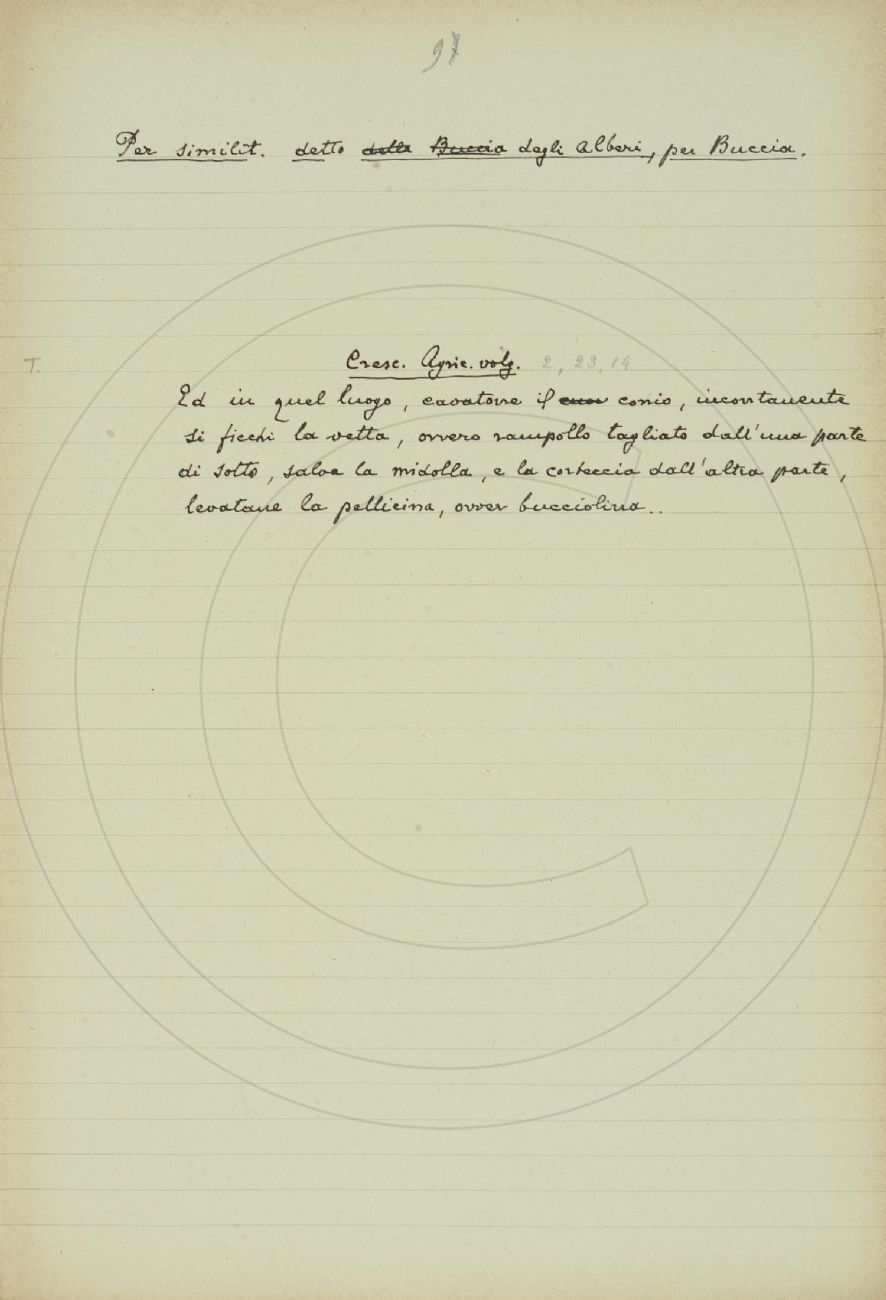 97
Per similit. detto della Buccia degli Alberi, per Buccia.
T.
Cresc. Agric. volg. 2, 23, 14
Ed in quel luogo, cavatone il conio, incontanente
si ficchi la vetta, ovvero rampollo tagliato dall'una parte
di sotto, salva la midolla, e la corteccia dall'altra parte,
levatane la pellicina, ovver bucciolina..